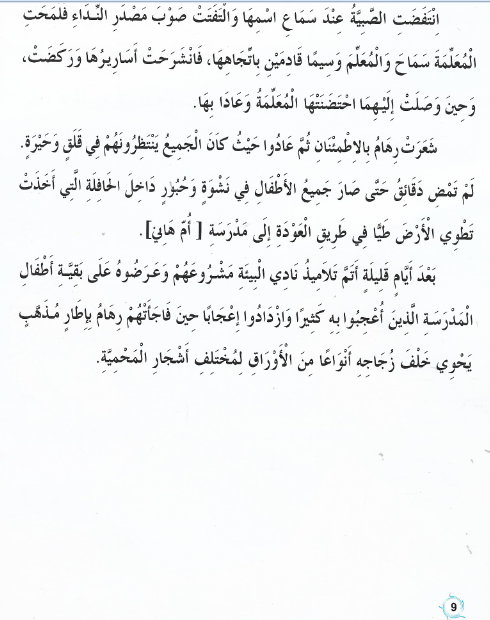 اِنْتَفَضَتِ الصَّبِيَّةُ عِنْدَ سَمَاعِ اسْمِهَا وَالْتَفَتَتْ صَوْبَ مَصْدَرِ النِّدَاءِ فَلَمَحَتِ
الْمُعَلِّمَةَ سَمَاحَ وَالْمُعَلِّمَ وَسِيمًا قَادِمَيْنِ بِاتِّجَاهِهَا، فَانْشَرَحَتْ أَسَارِيرُهَا وَرَكَضَتْ،
وَحِينَ وَصَلَتْ إِلَيْهِمَا احْتَضَنَتْهَا الْمُعَلِّمَةُ وَعَادَا بِهَا.
شَعَرَتْ رِهَامُ بِالِاطْمِئْنَانِ ثُمَّ عَادُوا حَيْثُ كَانَ الْجَمِيعُ يَنْتَظِرُونَهُمْ فِي قَلَقٍ وَحَيْرَةٍ.
لَمْ تَمْضِ دَقَائِقُ حَتَّى صَارَ جَمِيعُ الْأَطْفَالِ فِي نَشْوَةٍ وَحُبُورٍ دَاخِلَ الْحَافِلَةِ الَّتِي أَخَذَتْ
تَطْوِي الْأَرْضَ طَيًّا فِي طَرِيقِ الْعَوْدَةِ إِلَى مَدْرَسَةِ [ أُمِّ هَانِئٍ].
بَعْدَ أَيَّامٍ قَلِيلَةٍ أَتَمَّ تَلَامِيذُ نَادِي الْبِيئَةِ مَشْرُوعَهُمْ وَعَرَضُوهُ عَلَى بَقِيَّةِ أَطْفَالِ
الْمَدْرَسَةِ الَّذِينَ أُعْجِبُوا بِهِ كَثِيرًا وَازْدَادُوا إِعْجَابًا حِينَ فَاجَأَتْهُمْ رِهَامُ بِإِطَارٍ مُذَهَّبٍ
يَحْوِي خَلْفَ زُجَاجِهِ أَنْوَاعًا مِنَ الْأَوْرَاقِ لِمُخْتَلِفِ أَشْجَارِ الْمَحْمِيَّةِ.
9